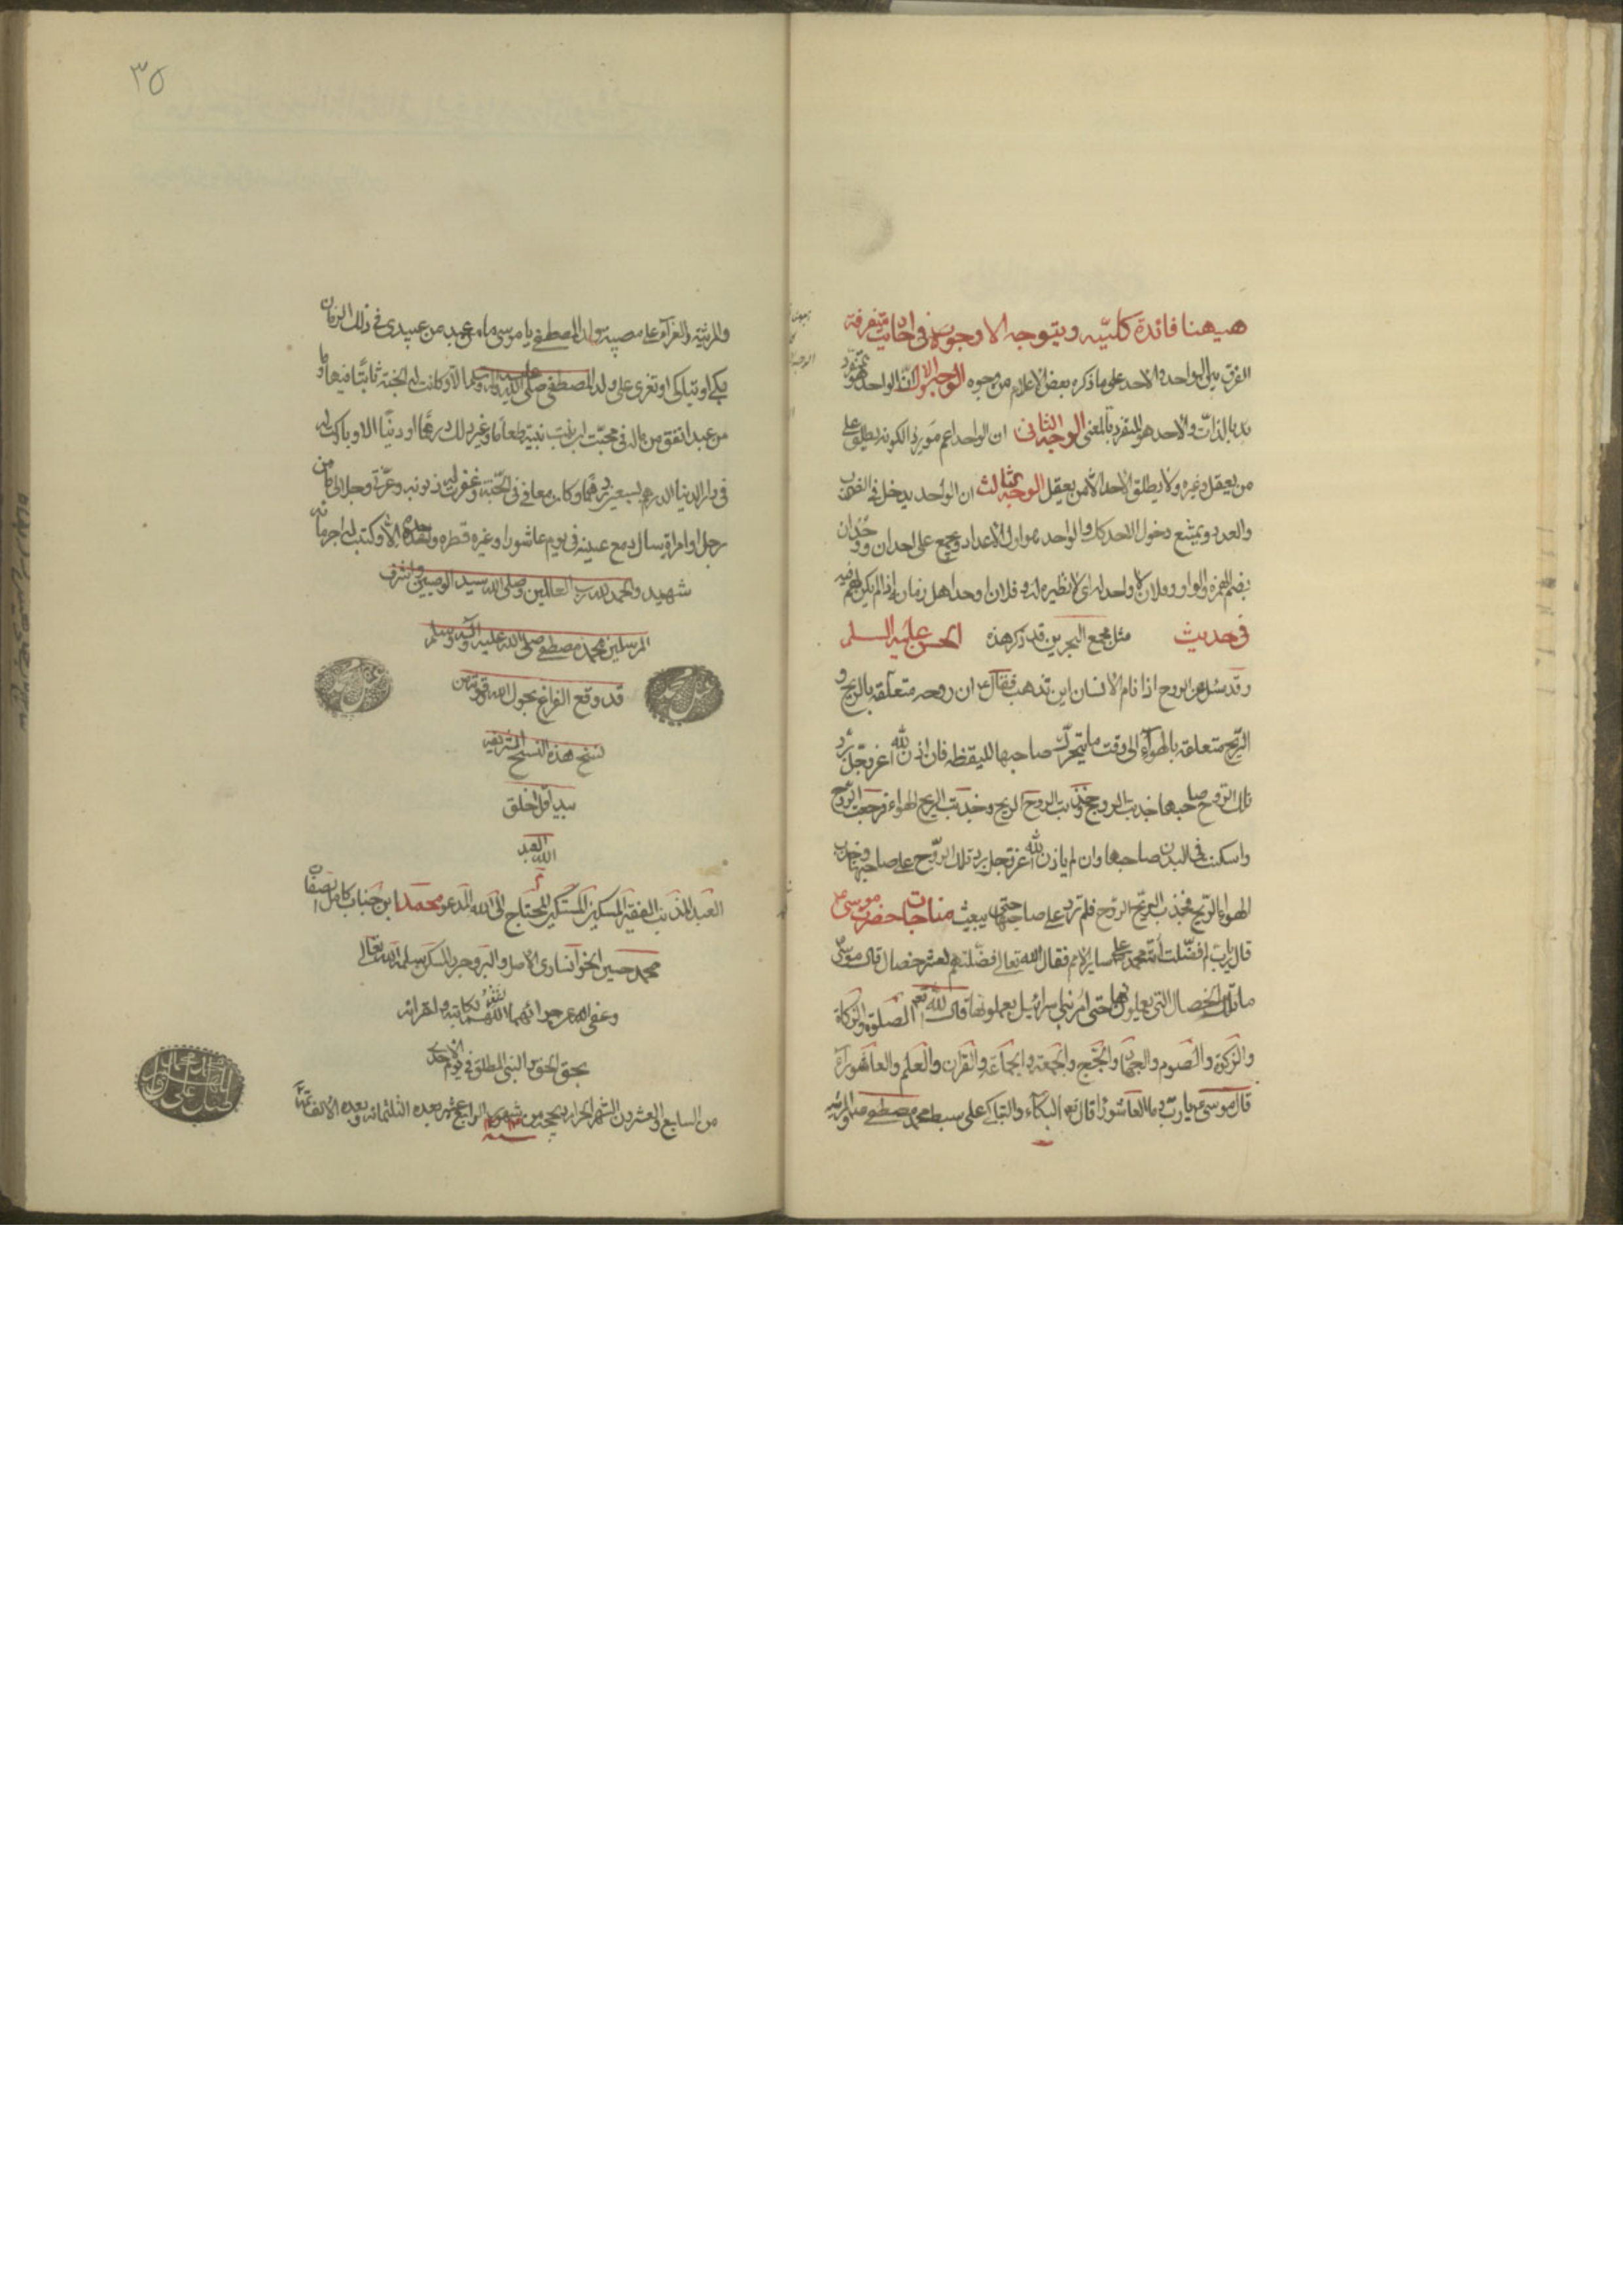 هيهنا فائدة كليّه ويتوجه الاوجوه في احاديث متفرقة
الفرق بين الواحد والاحد على ما ذكره بعض الاعلام من وجوه الوجه الاول انّ الواحد هو المتفرد
بالذات والاحد هو المتفرد بالمعنى الوجه الثانى ان الواحد اعم موردا لكونه يطلق على
من يعقل وغيره ولا يطلق الاحد الا لمن يعقل الوجه الثالث ان الواحد يدخل في الضرب
والعدد ويمتنع دخول الاحد كك والواحد هو اول الاعداد ويجمع على احدان ووحدان
بضم الهمزه والواو وفلان لا واحد له اى لا نظير له وفلان اوحد اهل زمانه اذا لم يكن لهم فيه
مثل مجمع البحرين قد ذكر هذه في حديث الحسن عليه السلم
وقد سئل عن الروح اذا نام الانسان اين تذهب فقال ع ان روحه متعلقه بالريح و
الريح متعلقه بالهواء الى وقت ما يتحرك صاحبها لليقظه فان اذن الله عز وجل برد
تلك الروح صاحبها جذبت الروح وجذبت الروح الريح وجذبت الريح الهواء فرجعت الروح
واسكنت في البدن صاحبها وان لم ياذن الله عز وجل برد تلك الروح على صاحبها وجذب
الهواء الريح فجذب الريح الروح فلم ترد على صاحبها حتى يبعث مناجات حضرت موسى ع
قال يارب لم فضّلت امّة محمد على ساير الامم فقال الله تعالى فضّلتهم لعشر خصال قال موسى
ما تلك الخصال التي يعملونها حتى امر بني اسرائيل يعملونها قال الله تعم الصلوة والزكاة
والزكوة والصوم والجهاد والحج والجمعة والجماعة والقران والعلم والعاشوراء
قال موسى ع يا رب وما العاشورا قال تعم البكاء والتباكي على سبط محمد مصطفى ص والمرثيه
٣٥
والمرثيه والعزآء على مصيبة ولد المصطفى يا موسى ما من عبد من عبيدى في ذلك الزمان
بكى او تباكى او تعزى على ولد المصطفى صلى الله عليه وآله وسلم الا وكانت له الجنة ثابتا فيها وما
من عبد انفق من ماله في محبّت ابن بنت نبيه طعاما وغير ذلك درهما او دينا الا وباركت له
في دار الدنيا الدرهم بسبعين درهما وكان معافى في الجنة وغفرت له ذنوبه وعزتي وجلالي ما من
رجل او امراة سال دمع عينيه في يوم عاشورا وغيره قطره واحدة الا وكتب له اجر مائه
شهيد والحمد لله رب العالمين وصلى الله سيد الوصيين واشرف
المرسلين محمد مصطفى صلى الله عليه وآله وسلم
قد وقع الفراغ بحول الله وقوته من
نسخ هذه النسخ الشريفه
بيد اقل الخلق
العبد المذنب الفقير المسكين المستكين المحتاج الى الله المدعو محمد ابن جناب
محمد حسين الخوانسارى الاصل والبروجرد المسكن سلمه الله تعالى
وعفى الله عن جرائهما اللهم اغفر لكاتبه ولقرائه
بحق الحق والنبى المطلق في يوم الاحد
من السابع والعشرون الشهر الحرام من شهور الرابع عشر بعده الثلثمائه وبعده الالف